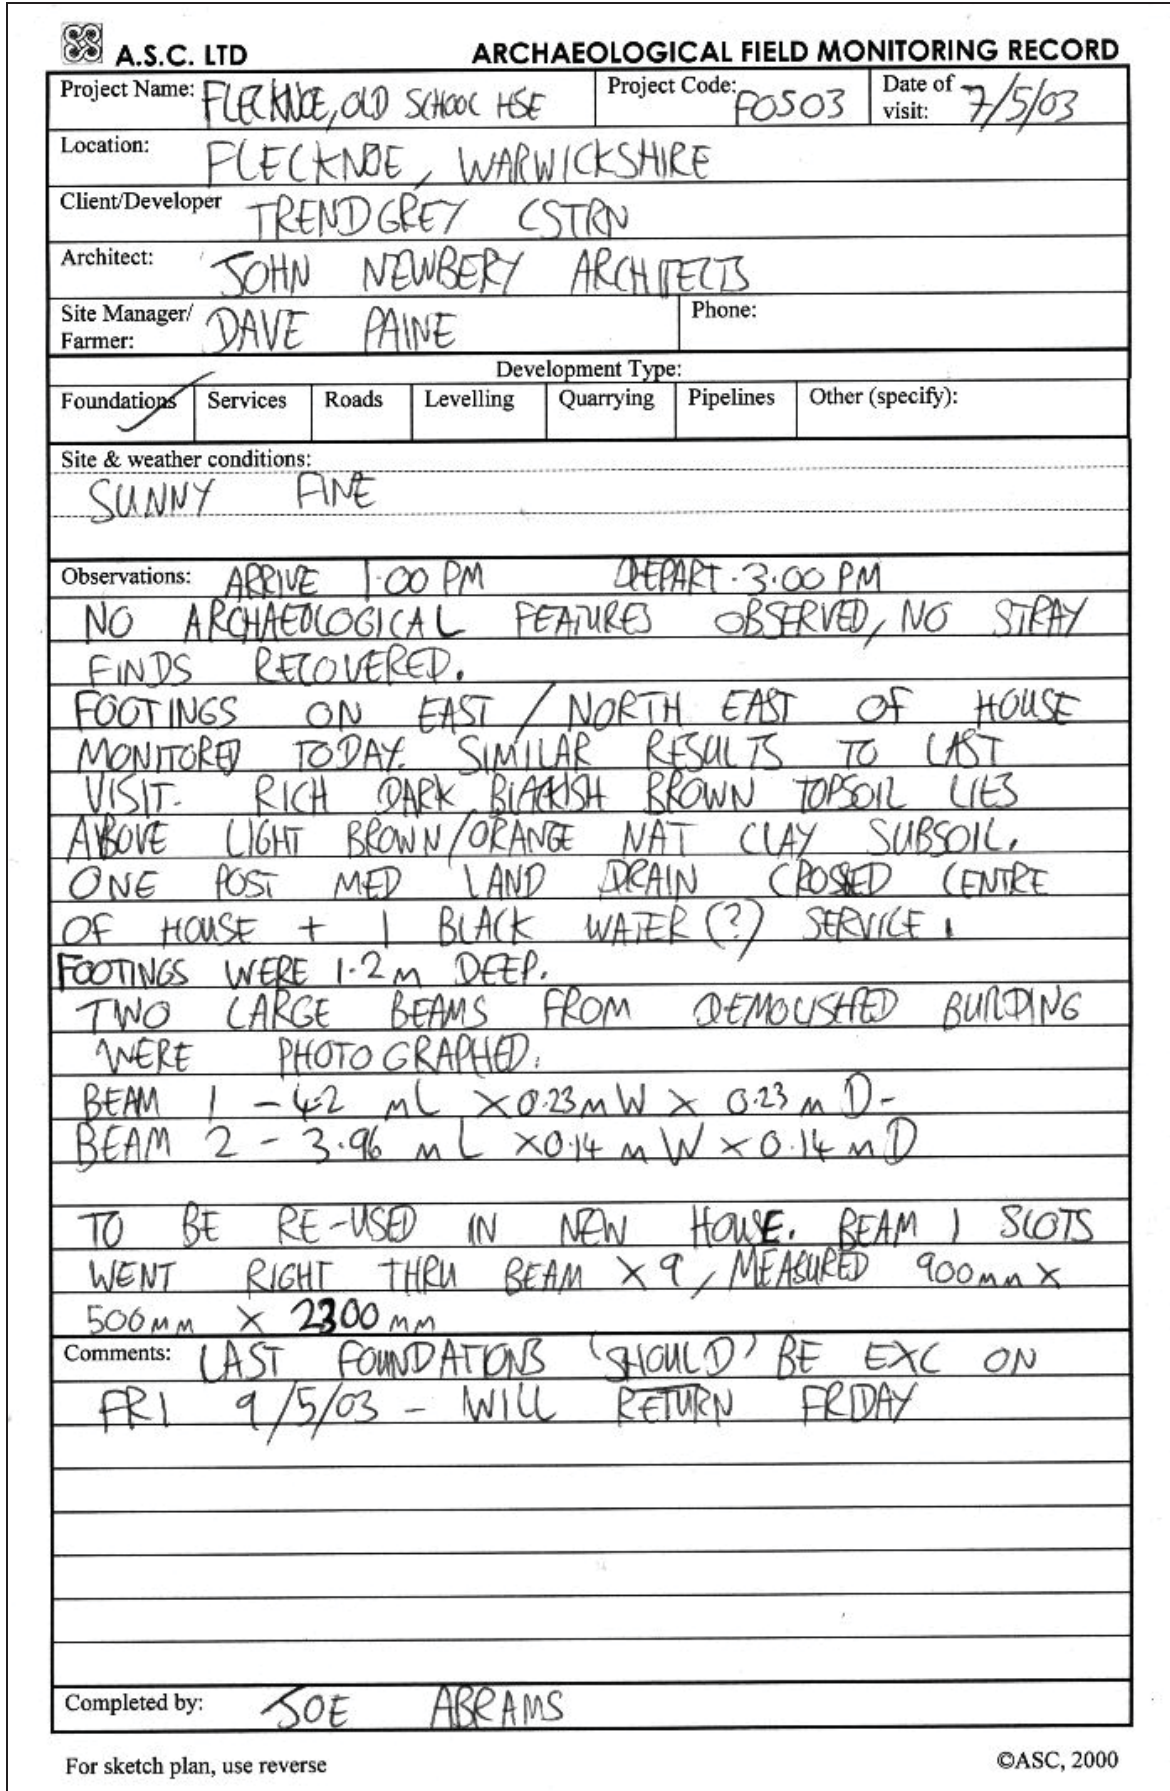 A.S.C. LTD ARCHAEOLOGICAL FIELD MONITORING RECORD
Project Name: FLECKNOE, OLD SCHOOL HSE Project Code: FOS03 Date of visit: 7/5/03
Location: FLECKNOE, WARWICKSHIRE
Client/Developer TRENDGREY CSTRN
Architect: JOHN NEWBERY ARCHITECTS
Site Manager/ Farmer: DAVE PAINE Phone:
Development Type:
Foundations Services Roads Levelling Quarrying Pipelines Other (specify):
Site & weather conditions:
SUNNY FINE
Observations: ARRIVE 1·00 PM DEPART·3·00 PM
NO ARCHAEOLOGICAL FEATURES OBSERVED, NO STRAY
FINDS RECOVERED.
FOOTINGS ON EAST / NORTH EAST OF HOUSE
MONITORED TODAY. SIMILAR RESULTS TO LAST
VISIT. RICH DARK BLACKISH BROWN TOPSOIL LIES
ABOVE LIGHT BROWN/ORANGE NAT CLAY SUBSOIL.
ONE POST MED LAND DRAIN CROSSED CENTRE
OF HOUSE + 1 BLACK WATER (?) SERVICE.
FOOTINGS WERE 1·2m DEEP.
TWO LARGE BEAMS FROM DEMOLISHED BUILDING
WERE PHOTOGRAPHED.
BEAM 1 - 4·2 mL × 0·23mW × 0·23 m D-
BEAM 2 - 3·96 m L × 0·14 m W × 0·14 m D
TO BE RE-USED IN NEW HOUSE. BEAM 1 SLOTS
WENT RIGHT THRU BEAM × 9, MEASURED 900mm ×
500mm × 2300mm
Comments: LAST FOUNDATIONS 'SHOULD' BE EXC ON
FRI 9/5/03 - WILL RETURN FRIDAY
Completed by: JOE ABRAMS
For sketch plan, use reverse ©ASC, 2000